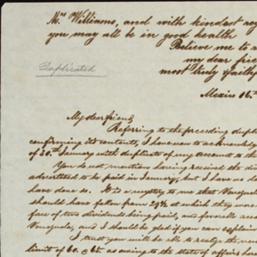 Mrs Williams, and with kindest reg
you may all be in good health
Believe me to
my dear frie
most truly faithf
Duplicated
Mexico 16th
My dear friend,
Referring to the preceding dupl
confirming its contents, I have now to acknowledg
of 30th January with duplicate of my account &
You do not mention having received the div
advertised to be paid in January, but I have no
have done so. It is a mystery to me that Venezuel
should have fallen from 29¾ at which they were
face of two dividends being paid, and favorable acco
Venezuela, and I should be glad if you can explain
I trust you will be able to realize the
limit of 60. @ 62. as owing to the state of affairs here